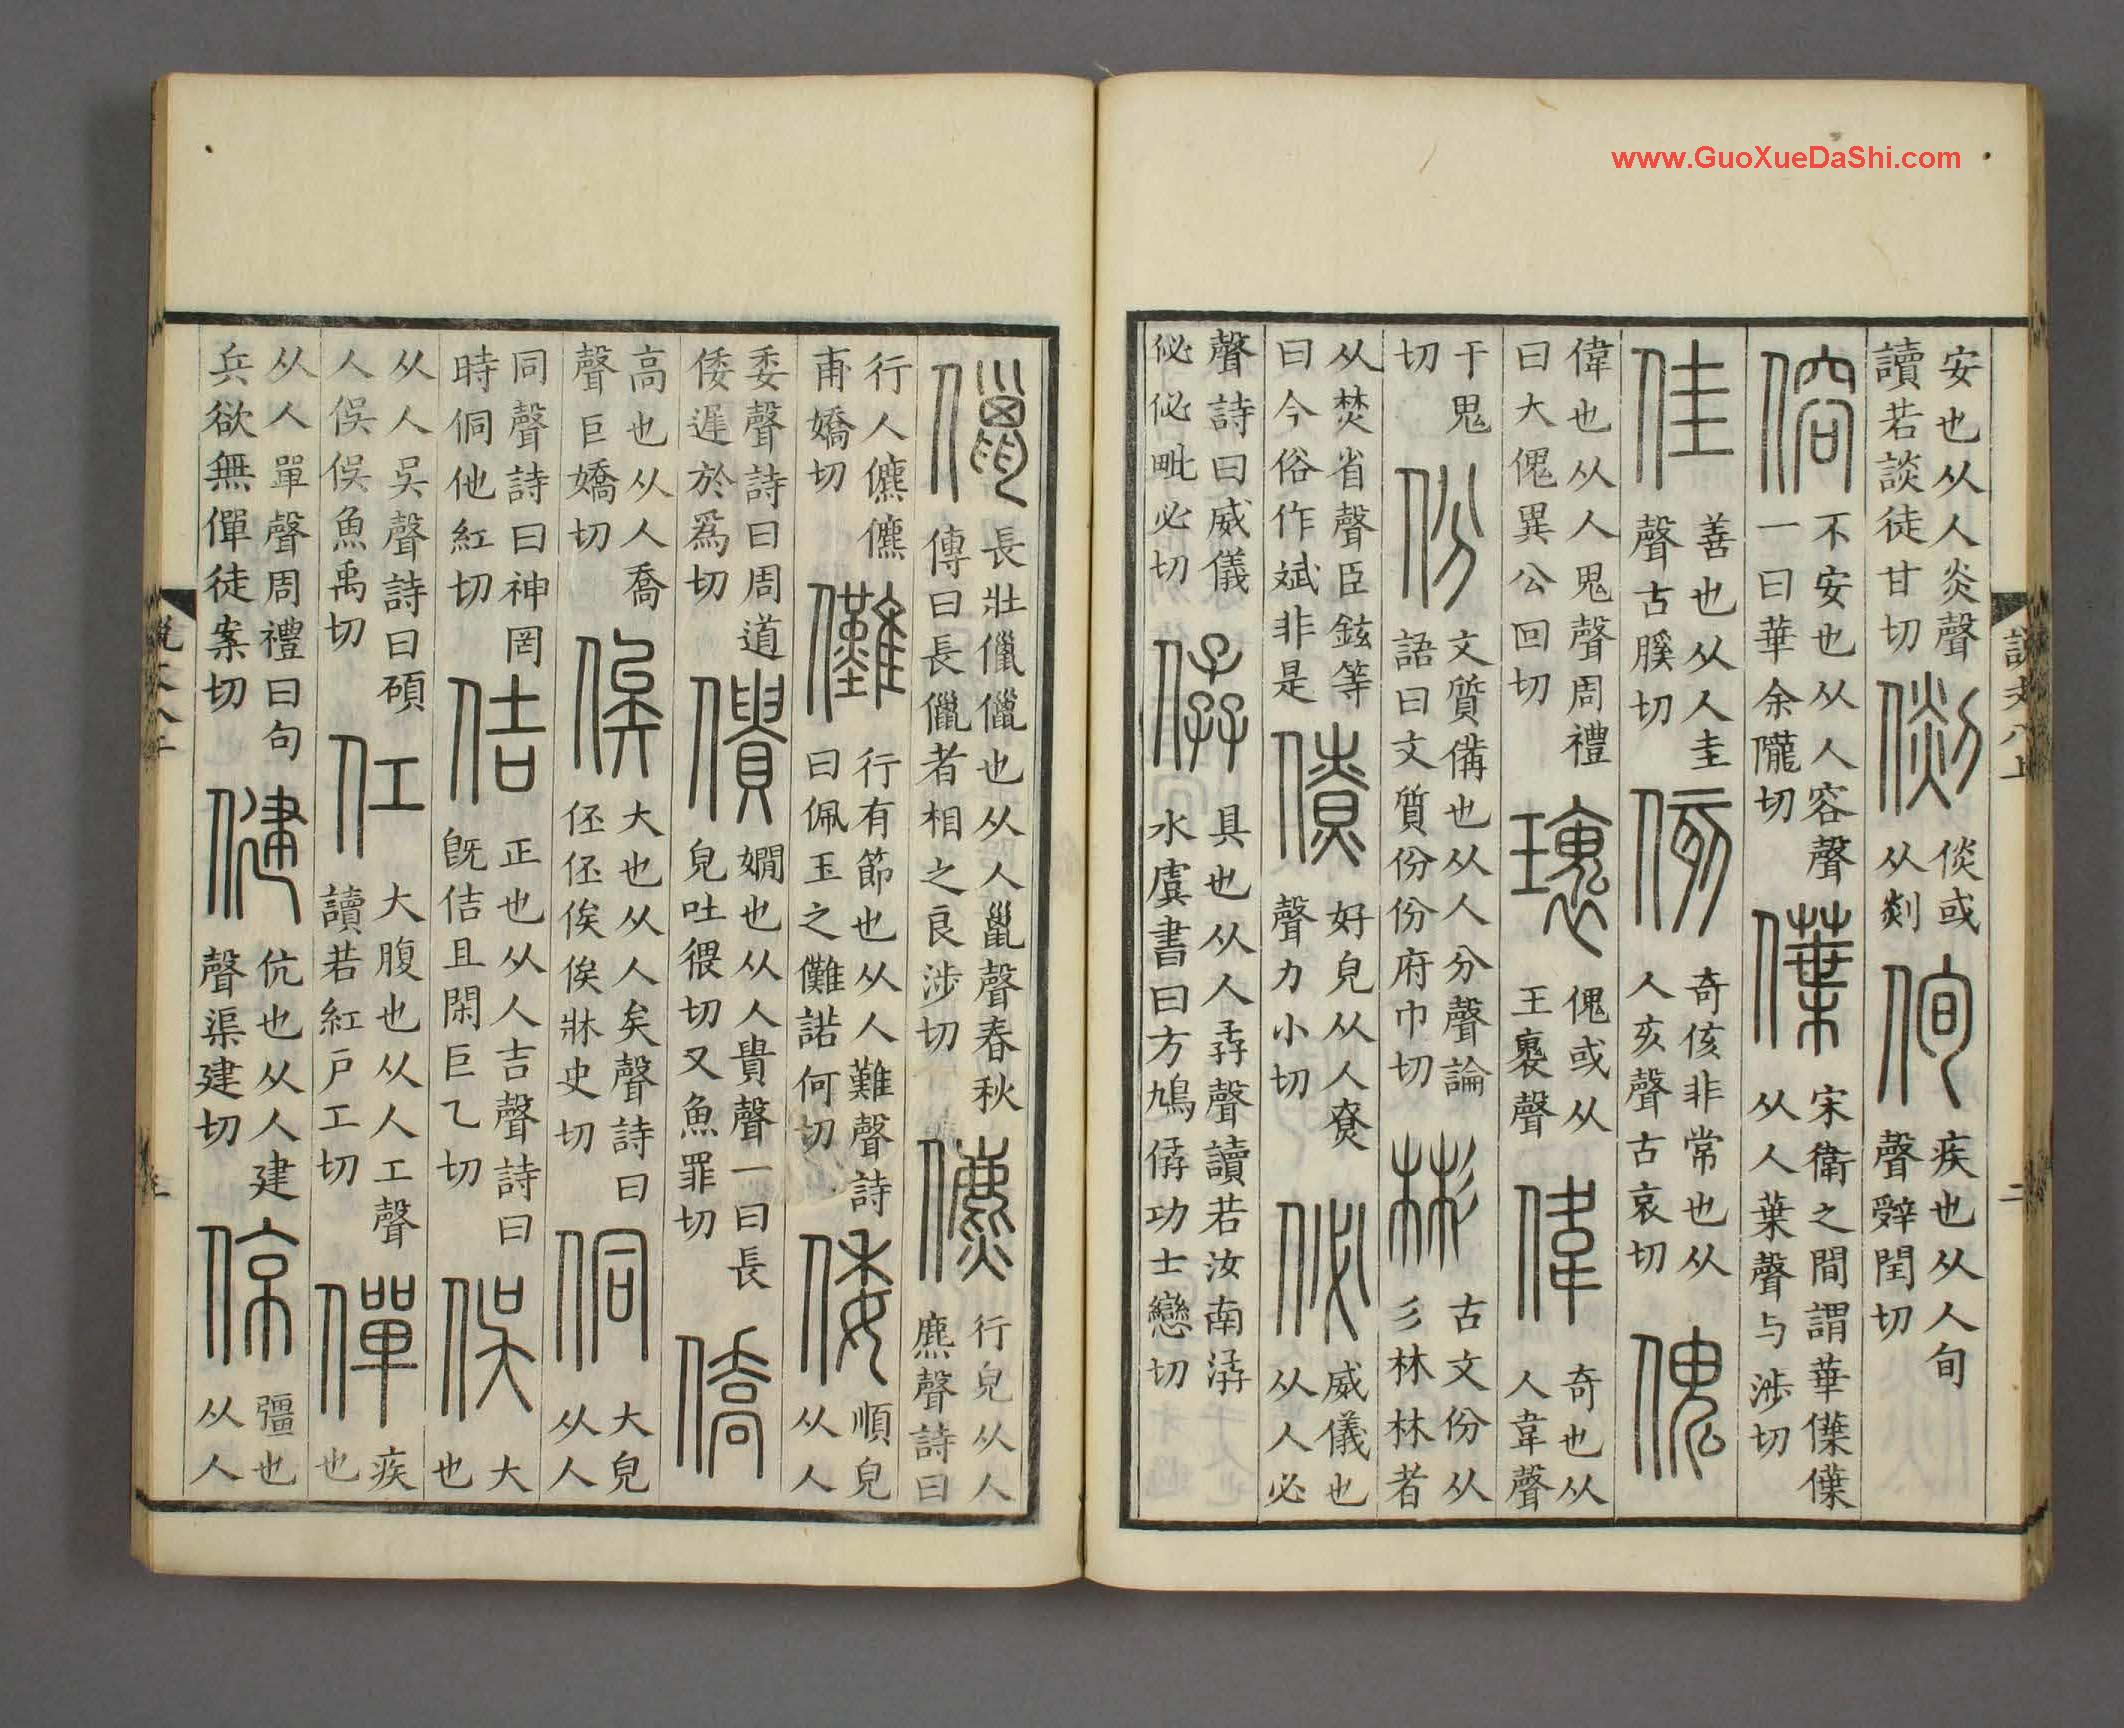 www.GuoXueDaShi.com
說文八上 二
安也从人炎聲
讀若談徒甘切
倓或
从剡
侚
疾也从人旬
聲辤閏切
傛
不安也从人容聲
一曰華余隴切
僷
宋衛之間謂華僷僷
从人葉聲与涉切
佳
善也从人圭
聲古膎切
侅
奇侅非常也从
人亥聲古哀切
傀
偉也从人鬼聲周禮
曰大傀異公回切
瓌
傀或从
玉褢聲
偉
奇也从
人韋聲
于鬼
切
份
文質僃也从人分聲論
語曰文質份份府巾切
彬
古文份从
彡林林者
从焚省聲臣鉉等
曰今俗作斌非是
僚
好皃从人尞
聲力小切
佖
威儀也
从人必
聲詩曰威儀
佖佖毗必切
僝
具也从人孨聲讀若汝南㵛
水虞書曰方鳩僝功士戀切
儠
長壯儠儠也从人巤聲春秋
傳曰長儠者相之良涉切
儦
行皃从人
麃聲詩曰
行人儦儦
甫嬌切
儺
行有節也从人難聲詩
曰佩玉之儺諾何切
倭
順皃
从人
委聲詩曰周道
倭遲於爲切
僓
嫺也从人貴聲一曰長
皃吐猥切又魚罪切
僑
高也从人喬
聲巨嬌切
俟
大也从人矣聲詩曰
伾伾俟俟牀史切
侗
大皃
从人
同聲詩曰神罔
時侗他紅切
佶
正也从人吉聲詩曰
旣佶且閑巨乙切
俁
大
也
从人吳聲詩曰碩
人俁俁魚禹切
仜
大腹也从人工聲
讀若紅戶工切
僤
疾
也
从人單聲周禮曰句
兵欲無僤徒案切
健
伉也从人建
聲渠建切
倞
彊也
从人